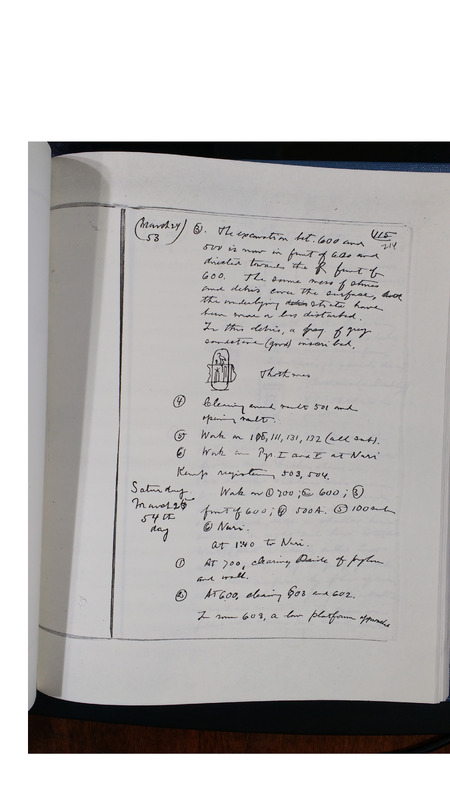 (March 24) 115
53 214
③. The excavation bet. 600 and
500 is now in front of 600 and
directed towards the R front of
600. The same mass of stones
and debris cover the surface, but
the underlying strata have
been more or less disturbed.
In this debris, a frag. of grey
sandstone (good) inscribed,
Thothmes
④ Clearing around vault 501 and
opening vault.
⑤ Work on 105, 111, 131, 132 (all sub).
⑥ Work on Pyr. I and II at Nuri
Kemp registering 503, 504.
Saturday Work on ① 700; ② 600; ③
March 25 front of 600; ④ 500A. ⑤ 100
54th ⑥ Nuri.
day At 1:40 to Nuri.
① At 700, clearing side of pylon
and wall.
② At 600, clearing 603 and 602.
In room 603, a low platform